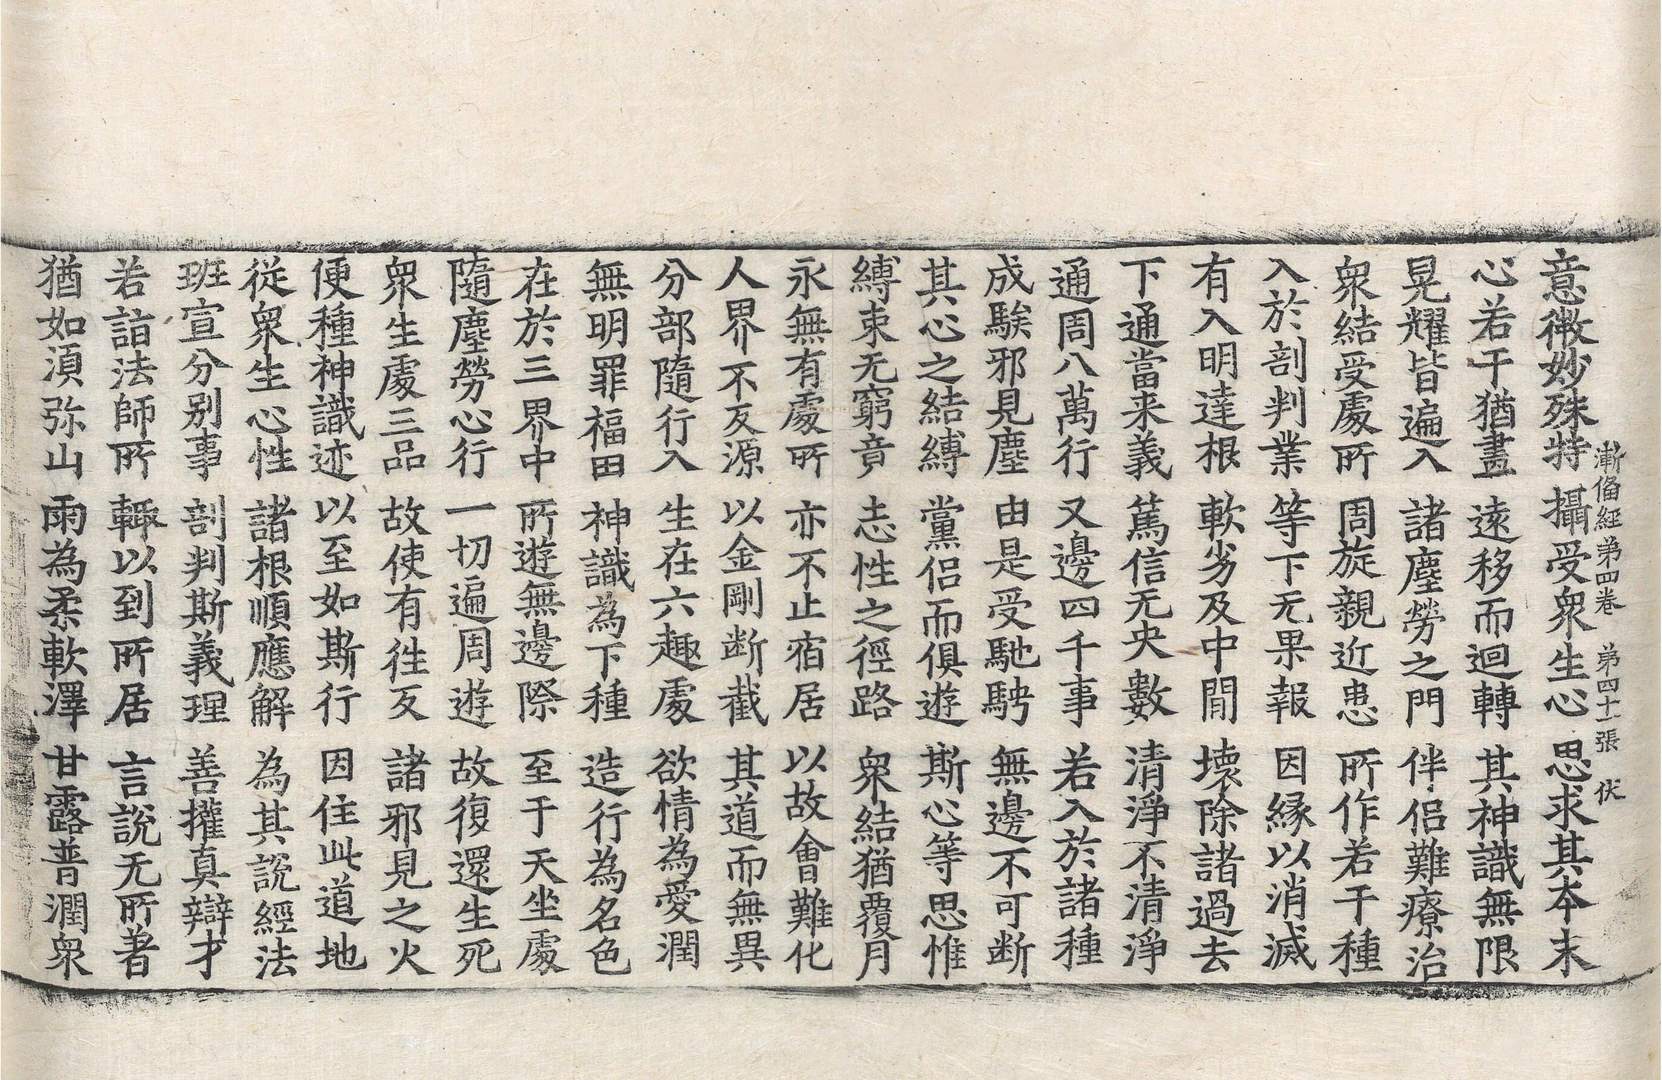 漸偹經第四卷　第四十一張　伏
意微妙殊特　攝受衆生心　思求其夲末
心若干猶畫　遠移而迴轉　其神識無限
晃耀皆遍入　諸塵勞之門　伴侣難療治
衆結受處所　周旋親近患　所作若干種
入於剖判業　等下无果報　因緣以消滅
有入明達根　軟劣及中閒　壞除諸過去
下通當来義　篤信无央數　清淨不清淨
通周八萬行　又邊四千事　若入於諸種
成騃邪見塵　由是受馳騁　無邊不可断
其心之結縛　黨侶而俱遊　斯心等思惟
縛束无窮竟　志性之徑路　衆結猶覆月
永無有處所　亦不止宿居　以故會難化
人界不反源　以金剛断截　其道而無異
分部隨行入　生在六趣處　欲情為愛潤
無明罪福田　神識為下種　造行為名色
在於三界中　所遊無邊際　至于天坐處
隨塵勞心行　一切遍周遊　故復還生死
衆生處三品　故使有往反　諸邪見之火
便種神識迹　以至如斯行　因住此道地
從衆生心性　諸根順應解　為其説經法
班宣分別事　剖判斯義理　善攉真辯才
若詣法師所　輙以到所居　言說无所著
猶如湏弥山　雨為柔軟澤　甘露普潤衆